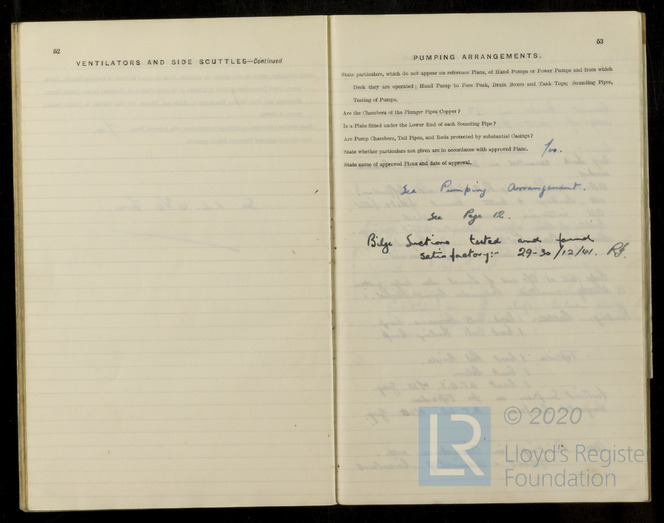 52
VENTILATORS AND SIDE SCUTTLES—Continued
53
PUMPING ARRANGEMENTS.
State particulars, which do not appear on reference Plans, of Hand Pumps or Power Pumps and from which
Deck they are operated; Hand Pump to Fore Peak, Drain Boxes and Tank Tops; Sounding Pipes,
Testing of Pumps.
Are the Chambers of the Plunger Pipes Copper?
Is a Plate fitted under the Lower End of each Sounding Pipe?
Are Pump Chambers, Tail Pipes, and Rods protected by substantial Casings?
State whether particulars not given are in accordance with approved Plans. Yes.
State name of approved Plans and date of approval.
See Pumping Arrangement.
See Page 12.
Bilge Suctions tested and found
satisfactory:- 29-30/12/41.
LR © 2020
Lloyd's Register
Foundation